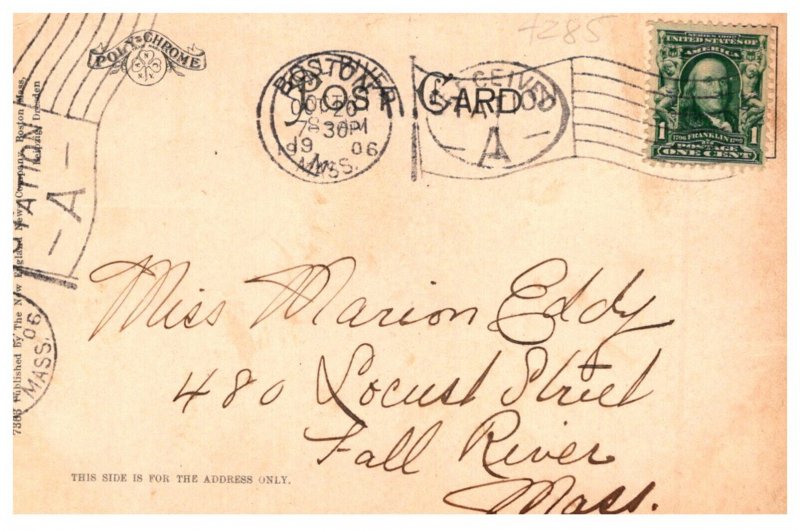 7285
POLY-CHROME
POST CARD
BOSTON
OCT 20
7 30 PM
19 06
MASS.
RECEIVED
A
SERIES 1902
UNITED STATES OF
AMERICA
1706 FRANKLIN 1790
POSTAGE
1 ONE CENT 1
STATION
-A-
06
MASS.
7383 Published by The New England News Company, Boston Mass.
Leipzig Dresden
Miss Marion Eddy
480 Locust Street
Fall River
Mass.
THIS SIDE IS FOR THE ADDRESS ONLY.